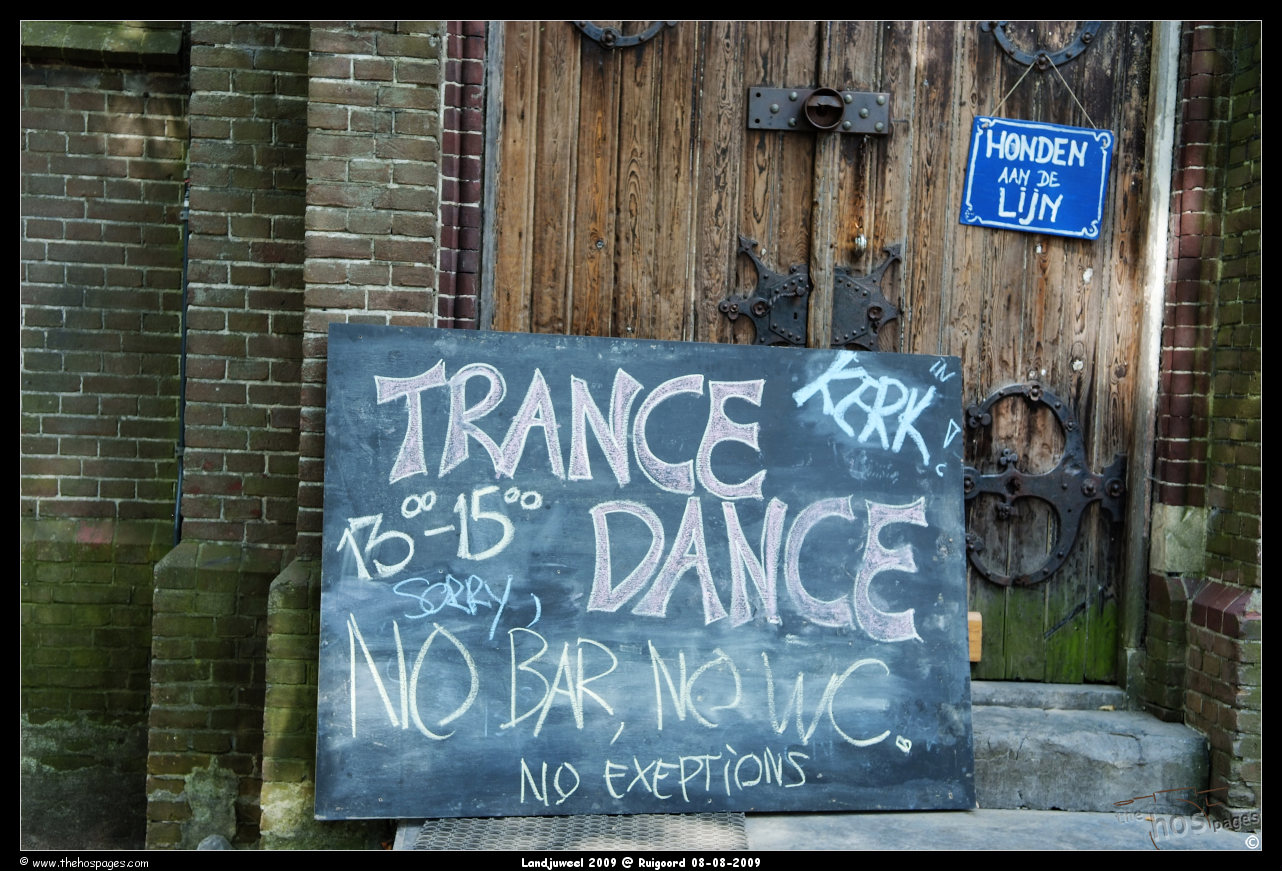 HONDEN
AAN DE
LIJN
TRANCE
IN
KERK!
DANCE
13°° - 15°°
SORRY,
NO BAR, NO WC.
NO EXEPTIONS.
the hos pages
© www.thehospages.com
Landjuweel 2009 @ Ruigoord 08-08-2009
©